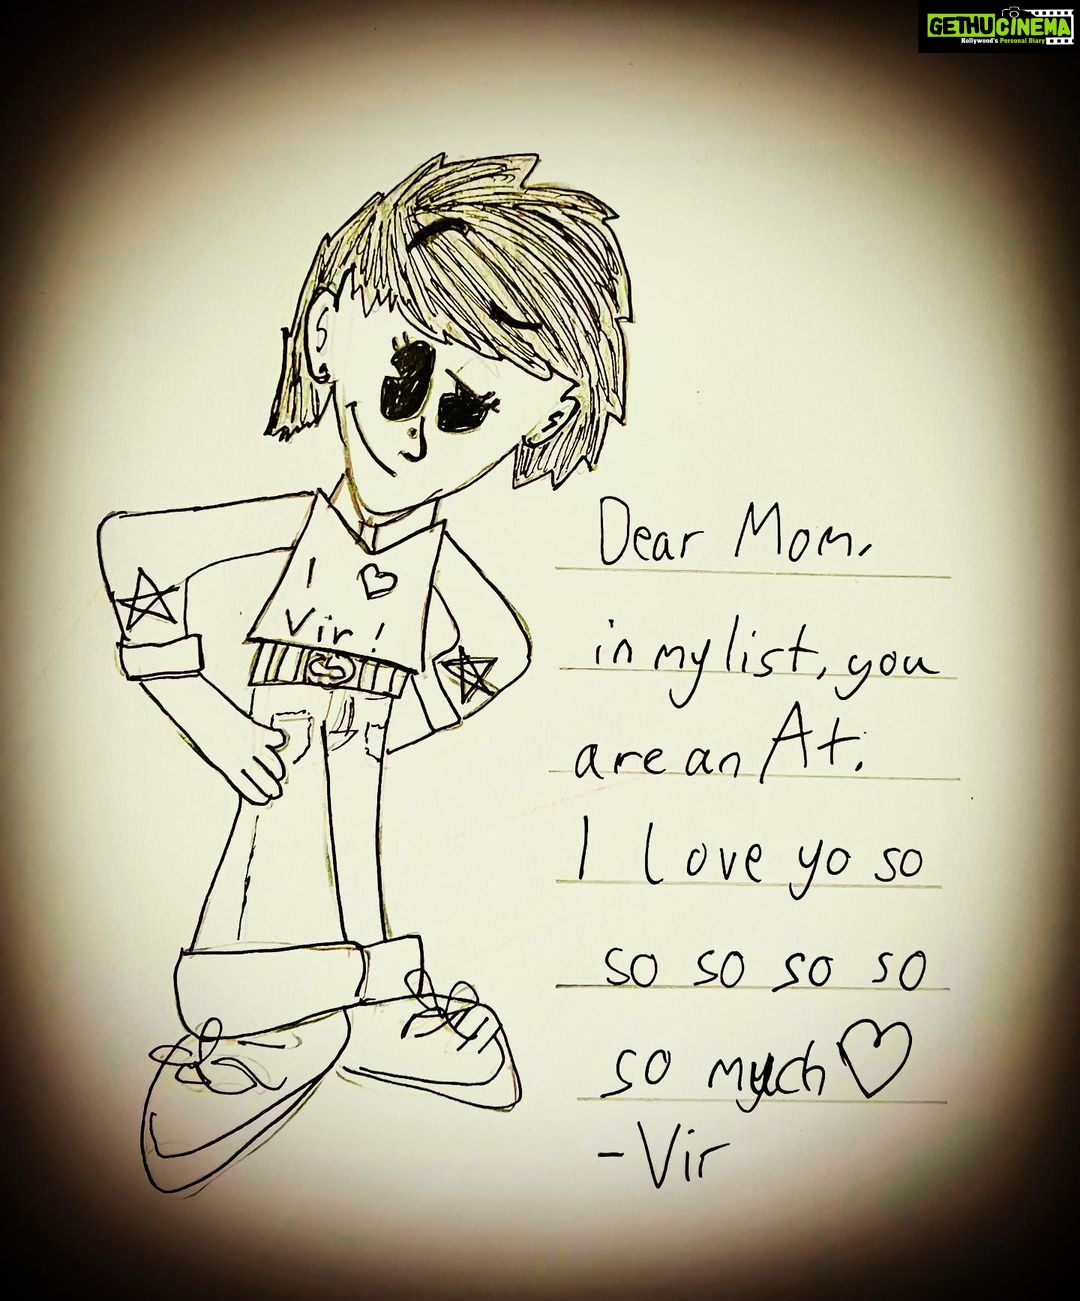 GETHUCINEMA
Kollywood's Personal Diary
I ♡
Vir!
Dear Mom,
in my list, you
are an A+.
I love yo so
so so so so
so much ♡
-Vir